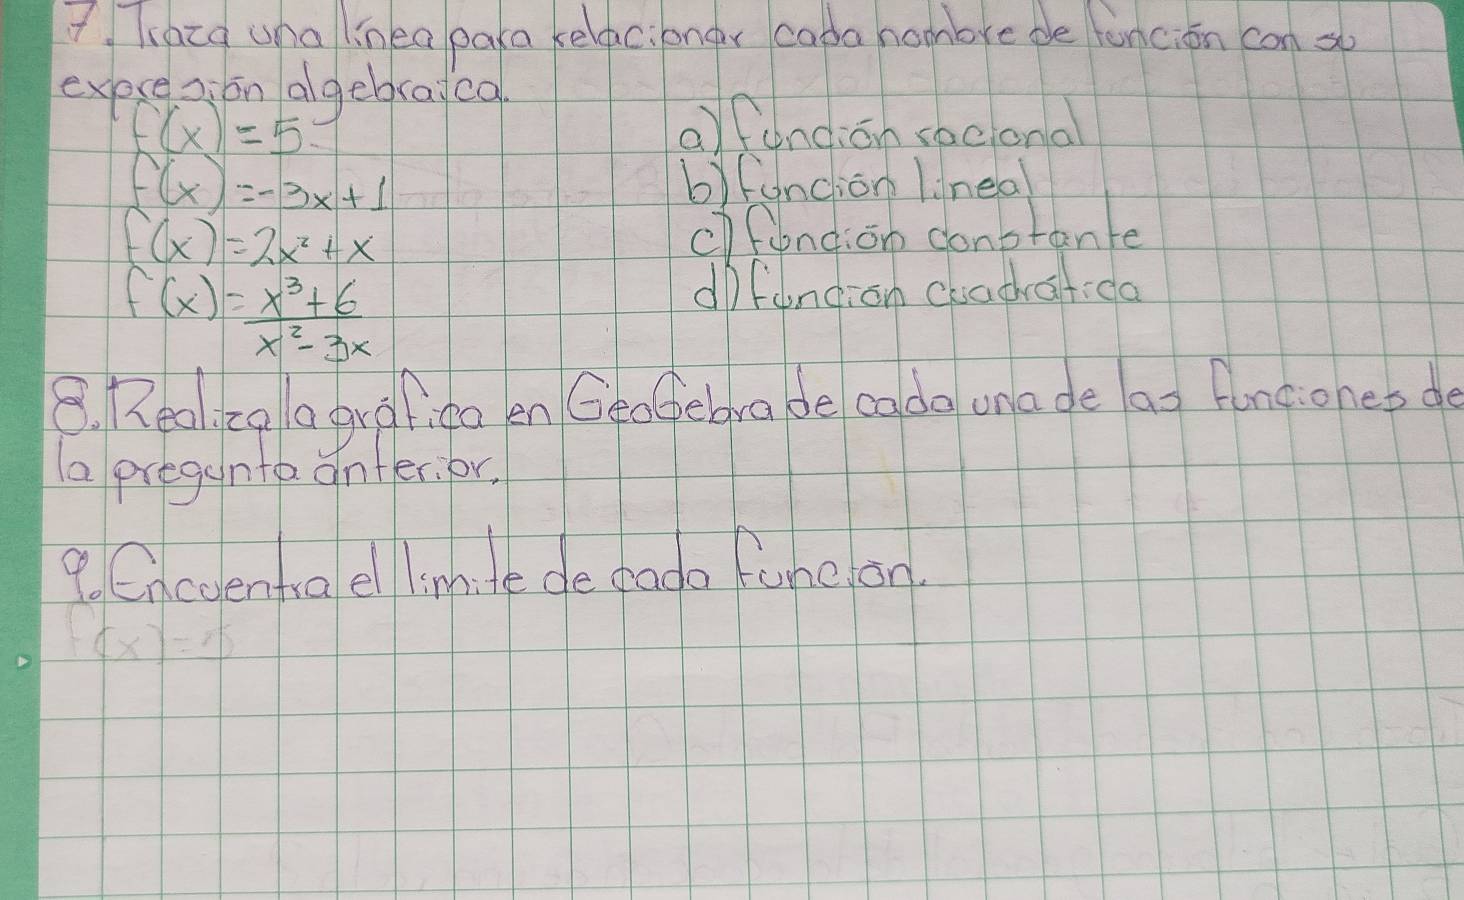 7. Traza una línea para relacionar cada nombre de función con su
expresión algebraica.
f(x) = 5 a) función racional
f(x) = -3x + 1 b) función lineal
f(x) = 2x² + x c) función constante
f(x) = x³ + 6 d) función cuadrática
x² - 3x
8. Realiza la gráfica en GeoGebra de cada una de las funciones de
la pregunta anterior.
9. Encuentra el limite de cada función.
f(x) = 5